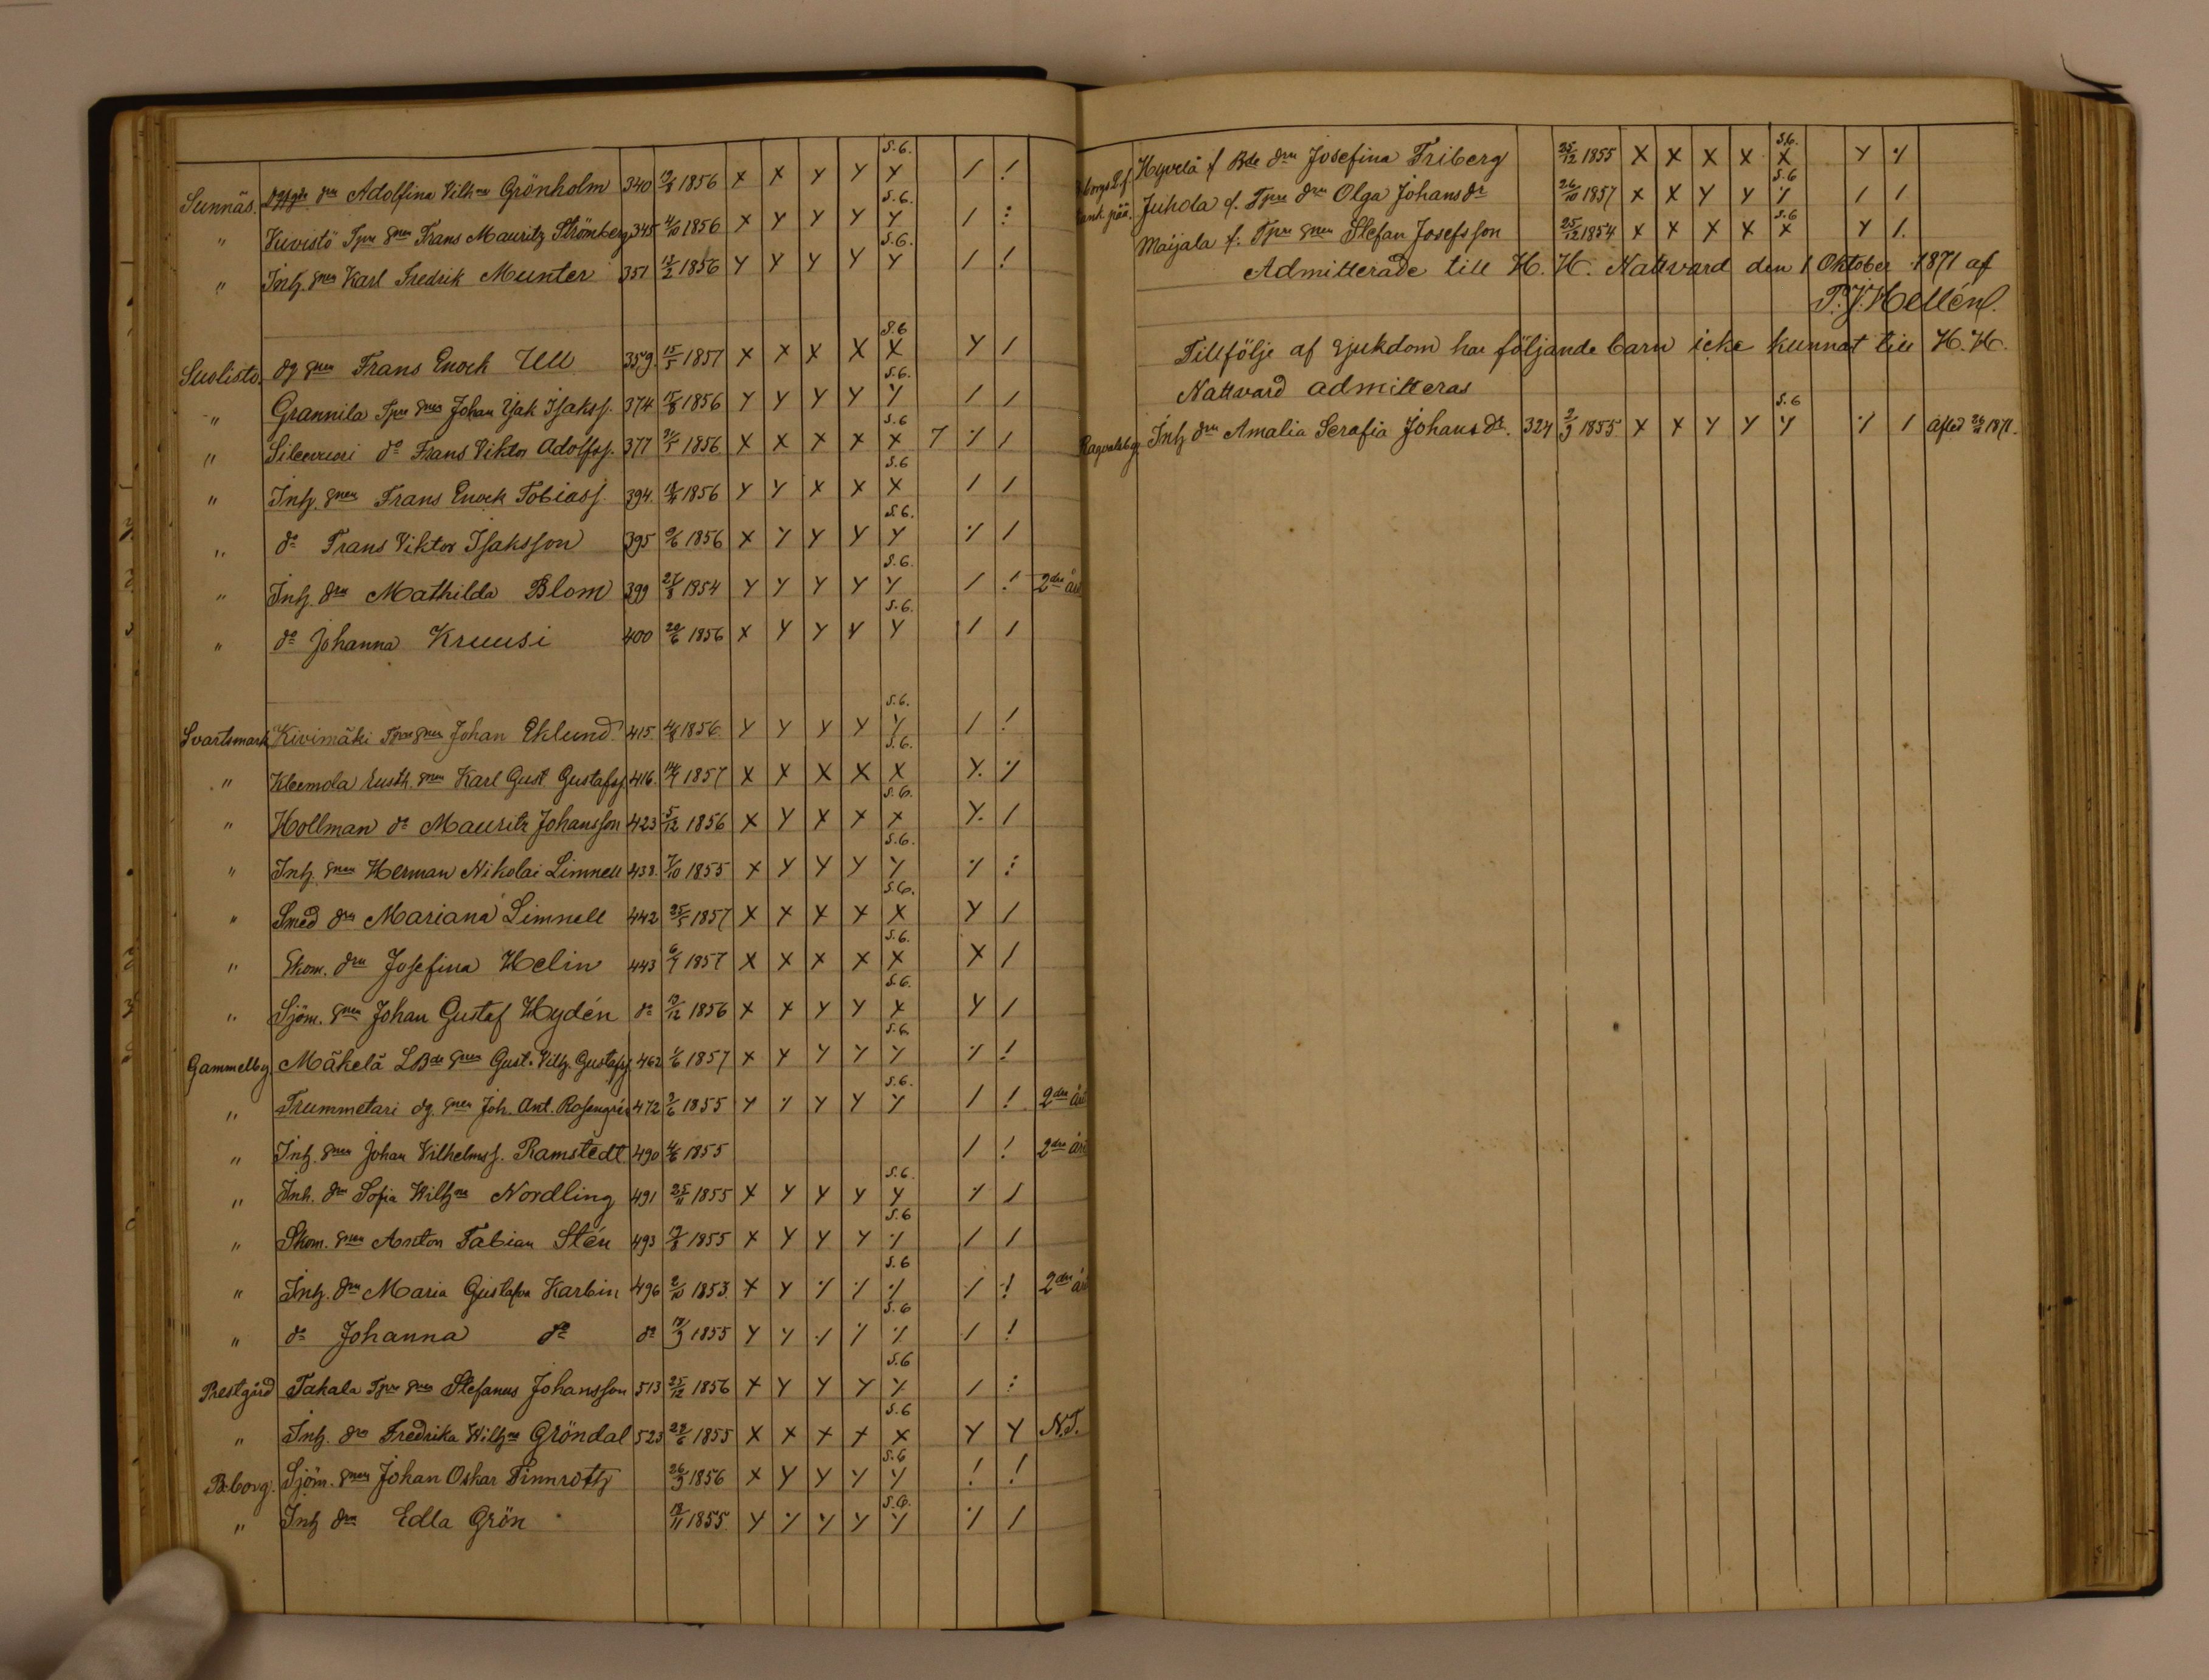 Sunnäs. dgfgds drn Adolfina Vilhna Grönholm 340 12/8 1856 X X Y Y S.6. Y / !
" Kuvistö Tpu gnen Frans Mauritz Strömberg 345 4/10 1856 X Y Y Y S.6. Y / :
" Inh. gnen Karl Fredrik Munter 351 13/2 1856 Y Y Y Y S.6. Y / !
Suolisto. dg gnen Frans Enock Ull 359. 15/5 1857 X X X X S.6 X Y /
" Grannila Tpu gnen Johan Isak Isakss. 374 15/8 1856 Y Y Y Y S.6. Y / /
" Silovuori do Frans Viktor Adolfss. 377 21/5 1856 X X X X S.6 X 7 ٪ /
" Inh. gnen Frans Enock Tobiass. 394. 18/11 1856 Y Y X X S.6 X / /
" do Frans Viktor Isaksson 395 9/6 1856 X Y Y Y S.6. Y ٪ /
" Inh. drn Mathilda Blom 399 27/8 1854 Y Y Y Y S.6. Y / ! 2dra år
" do Johanna Kruusi 400 20/6 1856 X Y Y Y S.6. Y / /
Svartsmark Kivimäki Tpu gnen Johan Eklund 415. 4/8 1856 Y Y Y Y S.6. Y / !
" Kleemola Rusth. gnen Karl Gust Gustafss. 416. 14/7 1857 X X X X S.6. X Y. ٪
" Hollman do Mauritz Johansson 423 5/12 1856 X Y X X S.6. X Y. /
" Inh. gnen Herman Nikolai Limnell 438. 7/10 1855 X Y Y Y S.6. Y ٪ :
" Smed drn Mariana Limnell 442 25/5 1857 X X X X S.6. X Y /
" Skom. drn Josefina Helin 443 6/7 1857 X X X X S.6. X X /
" Sjöm. gnen Johan Gustaf Hydén do 19/12 1856 X X Y Y S.6. X Y /
Gammelby Mäkelä LBde gnen Gust. Vilh. Gustafss. 462 1/6 1857 X Y Y Y S.6. Y ٪ !
" Trummetari dg. gnen Joh. Ant. Rosengrén 472 2/6 1855 Y ٪ Y Y S.6. Y / ! 2dra år
" Inh. gnen Johan Vilhelmss. Ramstedt 490 4/6 1855 / ! 2dra år
" Inh. drn Sofia Wilhna Nordling 491 25/11 1855 X Y Y Y S.6. Y ٪ /
" Skom. gnen Anton Fabian Stén 493 19/8 1855 X Y Y Y S.6 ٪ / /
" Inh. drn Maria Gustafva Karbin 496 2/10 1853. X Y ٪ ٪ S.6 ٪ / ! 2dra år
" do Johanna do do 17/9 1855 Y ٪ ٪ ٪ S.6 ٪ / !
Prestgård Takala Tpu gnen Stefanus Johansson 513 25/12 1856 X Y Y Y S.6 Y / :
" Inh. drn Fredrika Wilhna Gröndal 523 28/6 1855 X X X X S.6 X Y Y N.T.
B:borg. Sjöm. gnen Johan Oskar Finnroth 26/9 1856 X Y Y Y S.6 Y ! !
" Inh drn Edla Grön 18/11 1855 Y ٪ Y Y S.6. Y ٪ /
Hyvelä f Bde drn Josefina Friberg 25/12 1855 X X X X S.6. X Y ٪
Juhola f. Tpu drn Olga Johansdr 26/10 1857 X X Y Y S.6 ٪ / /
Maijala f. Tpu gnen Stefan Josefsson 25/12 1854 X X X X S.6 X Y /.
Admitterade till H. H. Nattvard den 1 Oktober 1871 af
T. J. Hellén.
Tillfölje af sjukdom har följande barn icke kunnat till H. H.
Nattvard admitteras
Ragvalsby. Inh drn Amalia Serafia Johansdr. 324 2/9 1855 X X Y Y S.6 Y ٪ / afled 1871.